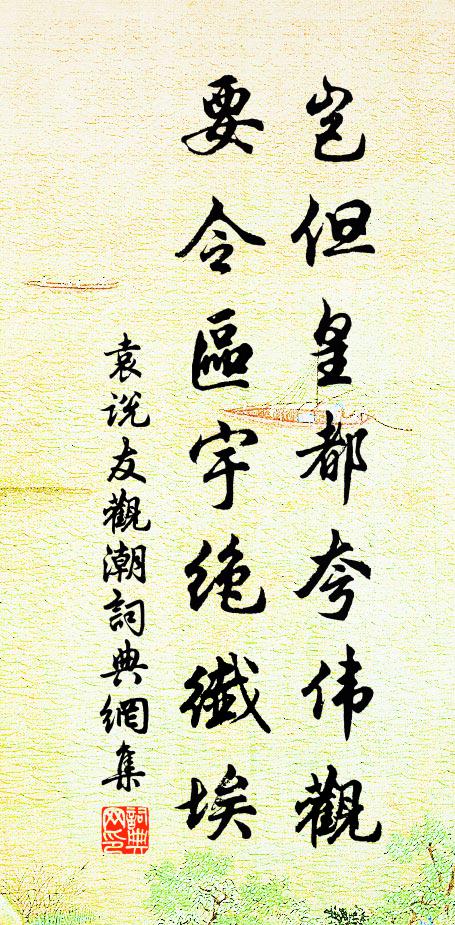 岂但皇都夸伟觀
要令區宇绝纖埃
袁说友觀潮詞典網集
詞典網印